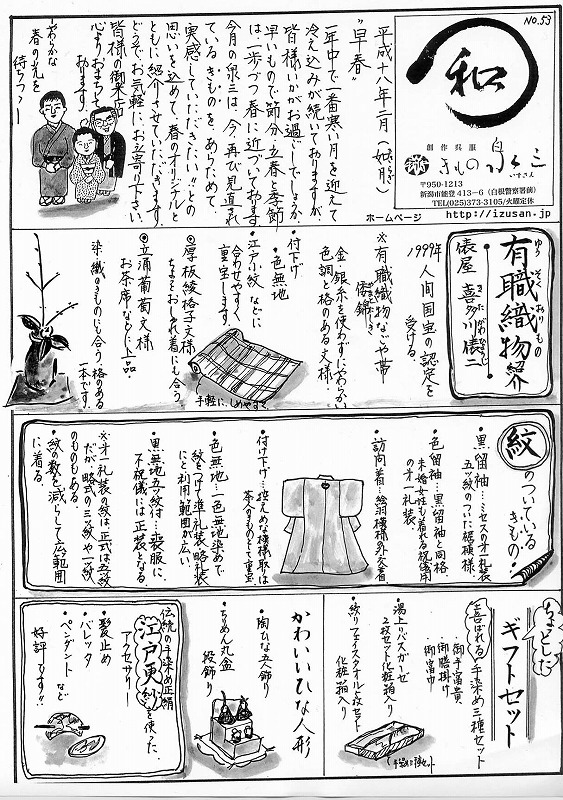 No.53
和
創作呉服
きもの 泉三
いずさん
〒950-1213
新潟市能登413-6(白根警察署前)
TEL(025)373-3105/火曜定休
ホームページ
http://izusan.jp
平成十八年二月(如月)
"早春"
一年中で一番寒い月を迎えて
冷え込みが続いておりますが、
皆様いかがお過ごしでしょうか。
早いもので節分、立春と季節
は一歩づつ春に近づいております。
今月の泉三は、今、再び見直され
ているきものを、あらためて、
実感していただきたい!!との
思いを込めて、春のオリジナルと
ともに紹介させていただきます。
どうぞお気軽にお立寄り下さい。
皆様の御来店
心よりおまちして
おります。
春の光を
待ちつつ
有職織物紹介
ゆうそくおりもの
俵屋 喜多川俵二
きたがわひょうじ
1999年人間国宝の認定を
受ける。
※有職織物なごや帯
倭錦
金銀糸を使わずにやわらかい
色調と格のある文様…
・付下げ
・色無地
・江戸小紋などに
合わせやすく
重宝します
◎厚板綾格子文様
ちょとおしゃれ着にも合う
◎立涌葡萄文様
お茶席などに上品
染織のきものにも合う格のある
一本です。
手軽に、しめやすく
紋のついているきもの!
・黒留袖…ミセスのオ一礼装
五ッ紋のついた裾模様
・色留袖…黒留袖と同格
未婚女性も着れる祝儀用
のオ一礼装。
・訪問着…絵羽模様の外交着
・付け下げ…控えめな模様取は
茶のきものとして重宝
・色無地…一色無地染めで
紋をつけて準礼装、略礼装
にと利用範囲が広い
・黒無地五ッ紋付…喪服に、
不祝儀には正装となる
※オ一礼装の紋は、正式は五ッ紋
だが略式の三ッ紋や一ッ紋
のものもある。
・紋の数を減らして広範囲
に着る。
ちょとした
ギフトセット
喜ばれる手染め三種セット
御手富貴
御膳掛け
御富巾
・湯上りバスガーゼ
2枚セット化粧箱入り
・絞りフェイスタオル2枚セット
化粧箱入り
かわいいひな人形
・陶ひな五人飾り
・ちりめん丸盆
段飾り
伝統の手染め正絹
江戸更紗を使った、
アクセサリー
・髪止め
・バレッタ
・ペンダント など
好評です!!